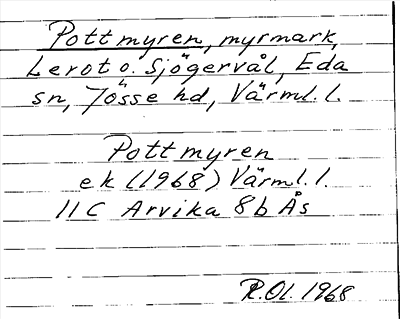 Pottmyren, myrmark,
Lerot o. Sjögervål, Eda
sn, Jösse hd, Värml. l.
Pottmyren
ek (1968) Värml. l.
11C Arvika 8b Ås
R.Ol. 1968